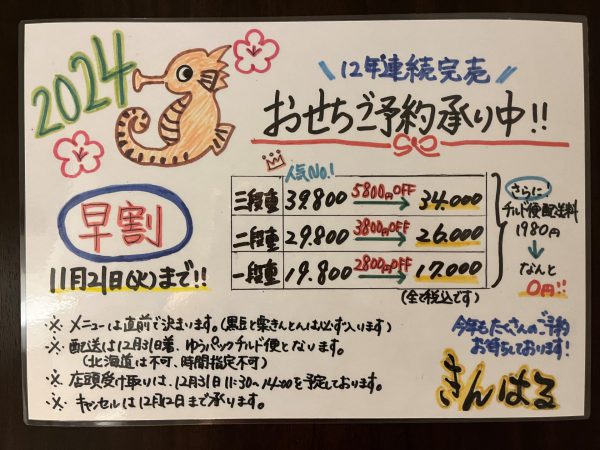 2024
\\12年連続完売//
おせちご予約承り中!!
早割
11月21日(火)まで!!
人気No.1
三段重 39.800 5800円OFF → 34.000
二段重 29.800 3800円OFF → 26.000
一段重 19.800 2800円OFF → 17.000
(全て税込です)
さらに!
チルド便配送料
1980円
↓
なんと
0円!!
※ メニューは直前で決まります。(黒豆と栗きんとんは必ず入ります)
※ 配送は12月31日着、ゆうパックチルド便となります。
(北海道は不可、時間指定不可)
※ 店頭受け取りは、12月31日 11:30~14:00を予定しております。
※ キャンセルは12月12日まで承ります。
今年もたくさんのご予約
お待ちしております!
きんはる